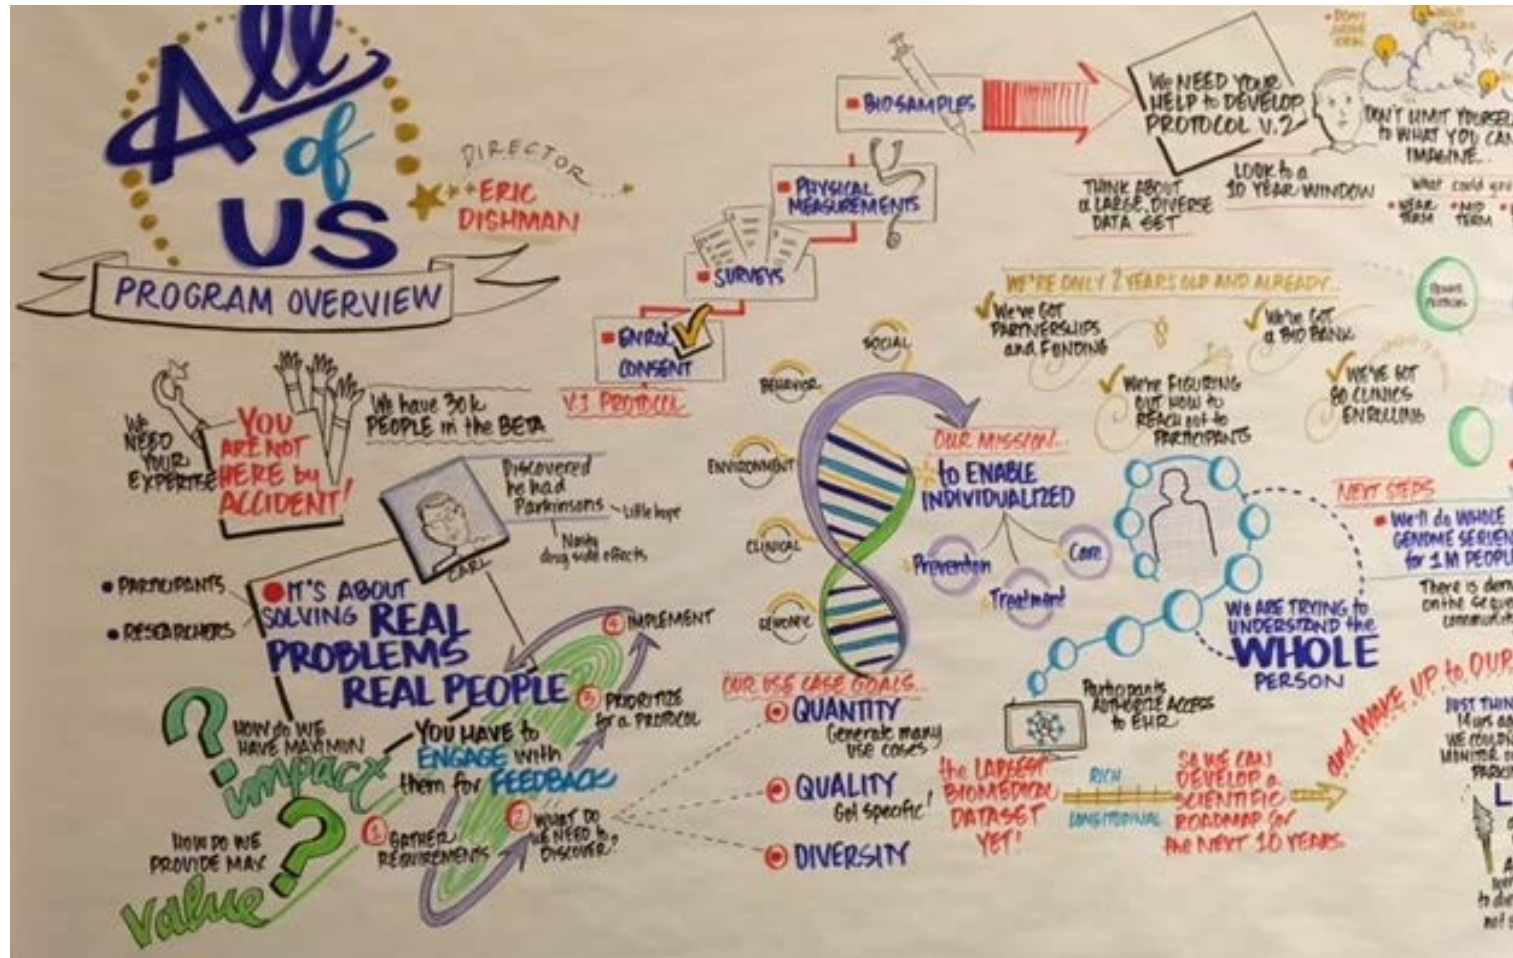 All
of
US
DIRECTOR
ERIC
DISHMAN
PROGRAM OVERVIEW
BIOSAMPLES
PHYSICAL
MEASUREMENTS
SURVEYS
ENROL
CONSENT
V.1 PROTOCOL
WE NEED YOUR
HELP to DEVELOP
PROTOCOL V.2
THINK ABOUT
a LARGE, DIVERSE
DATA SET
LOOK to a
10 YEAR WINDOW
DON'T
DON'T LIMIT YOURSEL
to WHAT YOU CAN
IMAGINE...
What could you
NEAR
TERM
MID
TERM
WE'RE ONLY 2 YEARS OLD AND ALREADY...
We've GOT
PARTNERSHIPS
and FUNDING
We've GOT
a BIO BANK
We're FIGURING
OUT HOW to
REACH out to
PARTICIPANTS
WE'VE GOT
80 CLINICS
ENROLLING
WE
NEED
YOUR
EXPERTISE
YOU
ARE NOT
HERE by
ACCIDENT!
We have 30k
PEOPLE in the BETA
Discovered
he had
Parkinsons
Little hope
Nasty
drug side effects
CARL
PARTICIPANTS
RESEARCHERS
IT'S ABOUT
SOLVING REAL
PROBLEMS
REAL PEOPLE
HOW do WE
HAVE MAXIMUM
impact
HOW DO WE
PROVIDE MAX
value
YOU HAVE to
ENGAGE with
them for FEEDBACK
1 GATHER
REQUIREMENTS
2 WHAT DO
WE NEED to
DISCOVER?
3 PRIORITIZE
for a PROTOCOL
4 IMPLEMENT
SOCIAL
BEHAVIOR
ENVIRONMENT
CLINICAL
GENOMIC
OUR MISSION...
to ENABLE
INDIVIDUALIZED
Prevention
Treatment
Care
OUR USE CASE GOALS...
QUANTITY
Generate many
use cases
QUALITY
Get specific!
DIVERSITY
WE ARE TRYING to
UNDERSTAND the
WHOLE
PERSON
Participants
AUTHORIZE ACCESS
to EHR
the LARGEST
BIOMEDICAL
DATASET
YET!
RICH
LONGITUDINAL
SO WE CAN
DEVELOP a
SCIENTIFIC
ROADMAP for
the NEXT 10 YEARS.
and WAKE UP to OUR
NEXT STEPS
We'll do WHOLE
GENOME SEQUEN
for 1M PEOPL
There is dem
on the seque
communit
JUST THIN
WE COULDN
MONITOR
PARKI
to die
not s